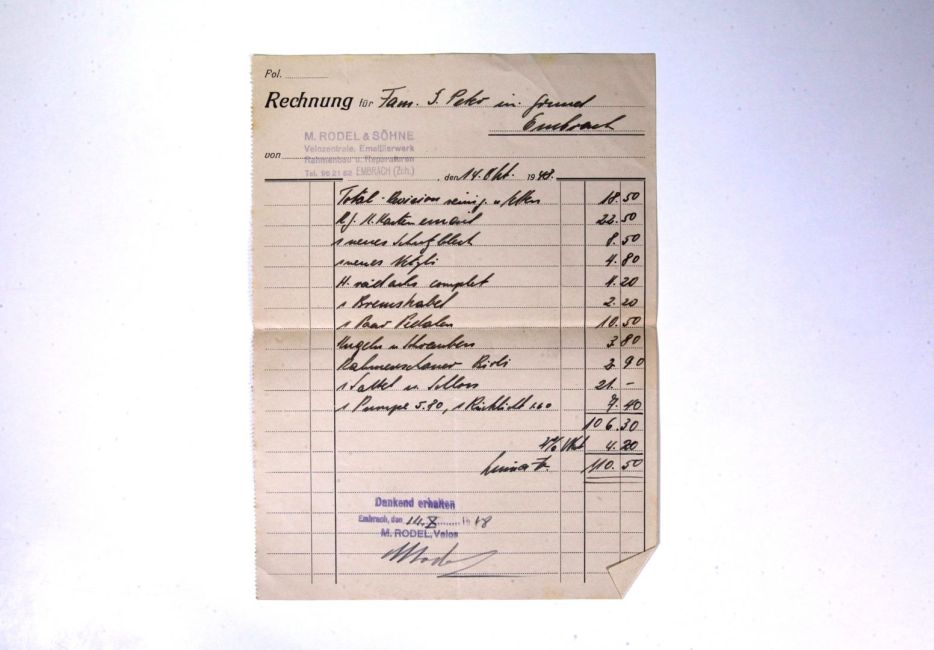 Pol.
Rechnung für Fam. J. Peter in Grund
Embrach
M. RODEL & SÖHNE
Velozentrale, Emaillierwerk
Rahmenbau u. Reparaturen
Tel. 96 21 62 EMBRACH (Zch.)
von
, den 14. Okt. 1948.
Total-Revision 18.50
email 22.50
1 neues Schutzblech 8.50
1 neues 4.80
complet 4.20
1 Bremskabel 2.20
1 Paar Pedalen 10.50
Kugeln u Schrauben 3.80
2.90
1 Sattel u. Schloss 21.-
1 Pumpe 5.80, 1 Rücklicht 1.60 7.40
106.30
4% Ust 4.20
110.50
Dankend erhalten
Embrach, den 14. X 1948
M. RODEL, Velos